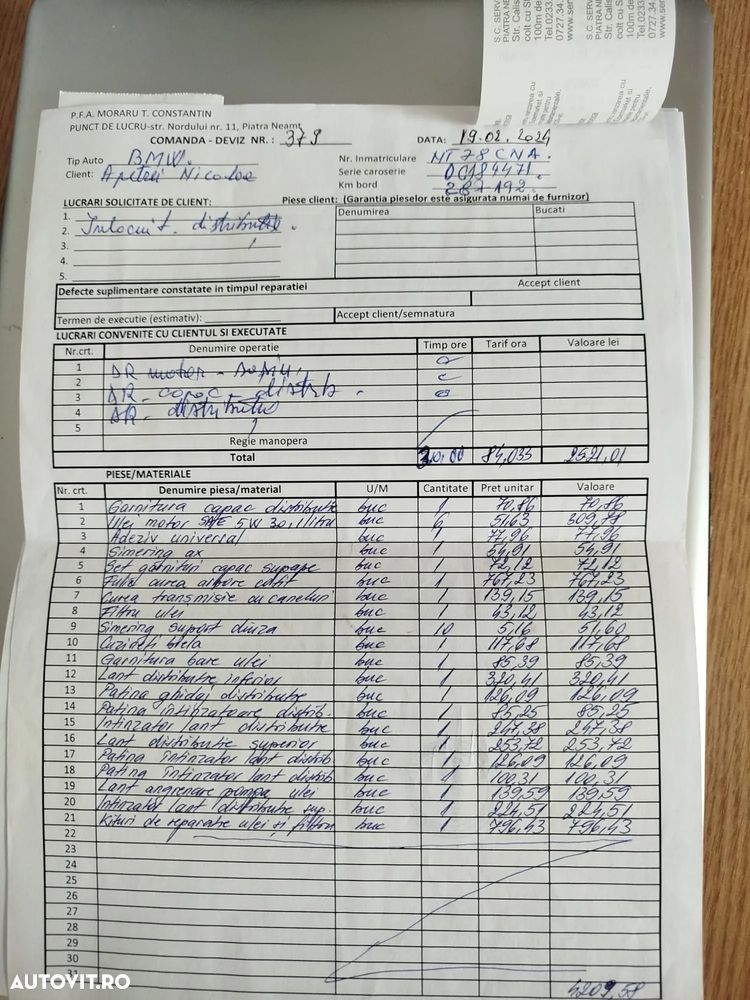 S.C. SERV
PIATRA NE
Str. Calis
colt cu St
100m de
Tel.0233.
0727.34
www.ser
P.F.A. MORARU T. CONSTANTIN
PUNCT DE LUCRU-str. Nordului nr. 11, Piatra Neamt
COMANDA - DEVIZ NR. : 379 DATA: 19.02.2024
Tip Auto BMW. Nr. Inmatriculare NT 78 CNA.
Client: Apetri Nicolae Serie caroserie 0C184471.
Km bord 287192.
LUCRARI SOLICITATE DE CLIENT: Piese client: (Garantia pieselor este asigurata numai de furnizor)
1. Denumirea Bucati
2. Inlocuit. distributie.
3.
4.
5.
Defecte suplimentare constatate in timpul reparatiei Accept client
Termen de executie (estimativ): Accept client/semnatura
LUCRARI CONVENITE CU CLIENTUL SI EXECUTATE
Nr.crt. Denumire operatie Timp ore Tarif ora Valoare lei
1 DR motor
2
3 DR capac distrib.
4 DR distributie
5
Regie manopera
Total 30,00 84,033 2521,01
PIESE/MATERIALE
Nr. crt. Denumire piesa/material U/M Cantitate Pret unitar Valoare
1 Garnitura capac distributie buc 1 70,86 70,86
2 Ulei motor SAE 5W 30, 1 litru buc 6 51,63 309,78
3 Adeziv universal buc 1 77,96 77,96
4 Simering ax buc 1 54,91 54,91
5 Set garnituri capac supape buc 1 72,12 72,12
6 Fulie curea arbore cotit buc 1 767,23 767,23
7 Curea transmisie cu caneluri buc 1 139,15 139,15
8 Filtru ulei buc 1 43,12 43,12
9 Simering suport diuza buc 10 5,16 51,60
10 Cuzineti biela buc 1 117,68 117,68
11 Garnitura baie ulei buc 1 85,39 85,39
12 Lant distributie inferior buc 1 320,41 320,41
13 Patina ghidaj distributie buc 1 126,09 126,09
14 Patina intinzatoare distrib. buc 1 85,25 85,25
15 Intinzator lant distributie buc 1 247,38 247,38
16 Lant distributie superior buc 1 253,72 253,72
17 Patina intinzator lant distrib buc 1 126,09 126,09
18 Patina intinzator lant distrib buc 1 100,31 100,31
19 Lant angrenare pompa ulei buc 1 139,59 139,59
20 Intinzator lant distributie sup. buc 1 224,51 224,51
21 Kituri de reparatie ulei și filtru buc 1 796,43 796,43
22
23
24
25
26
27
28
29
30
31
4209,58
AUTOVIT.RO